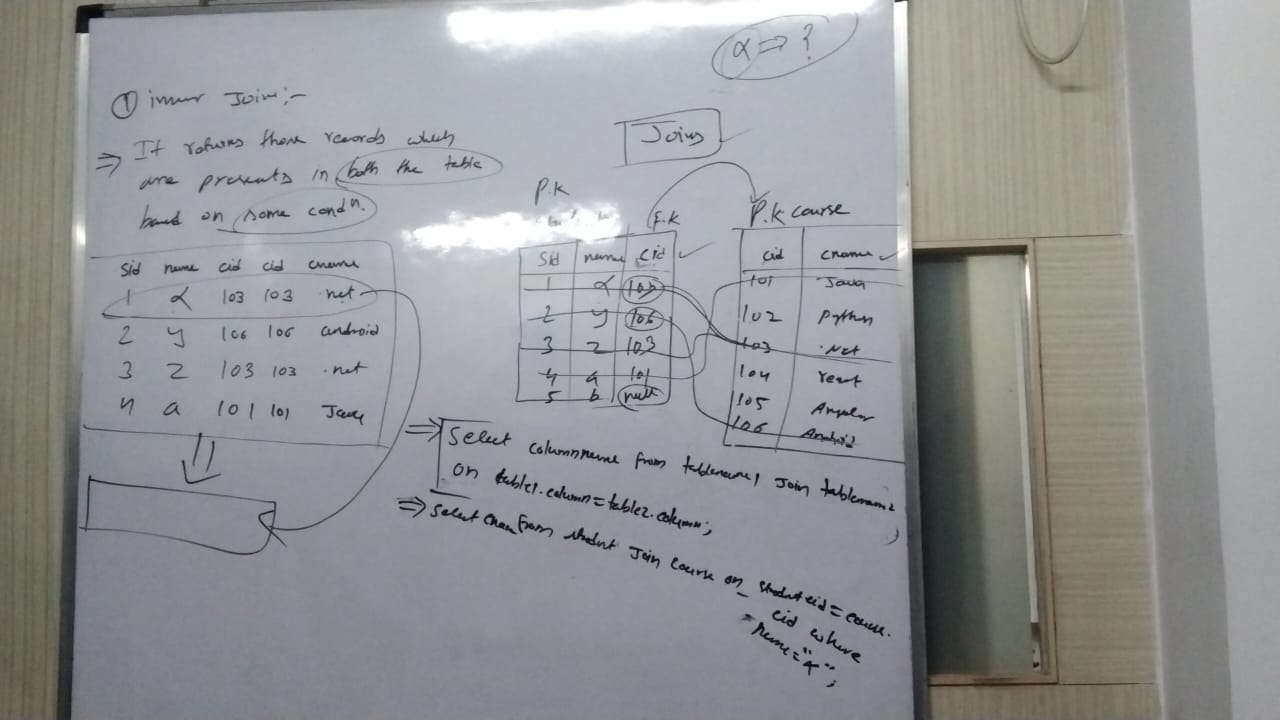 α => ?
① inner Join:-
=> It returns those records which
are presents in both the table
based on some condn.
sid name cid cid cname
1 α 103 103 .net
2 y 106 106 android
3 z 103 103 .net
4 a 101 101 Java
Joins
P.K
F.K
sid name cid
1 α 103
2 y 106
3 z 103
4 a 101
5 b null
P.K course
cid cname
101 Java
102 Python
103 .Net
104 react
105 Angular
106 Android
=> Select columnname from tablename1 Join tablename2
on table1.column=table2.column;
=> Select cname from student Join course on student.cid=course.
cid where
name="α";